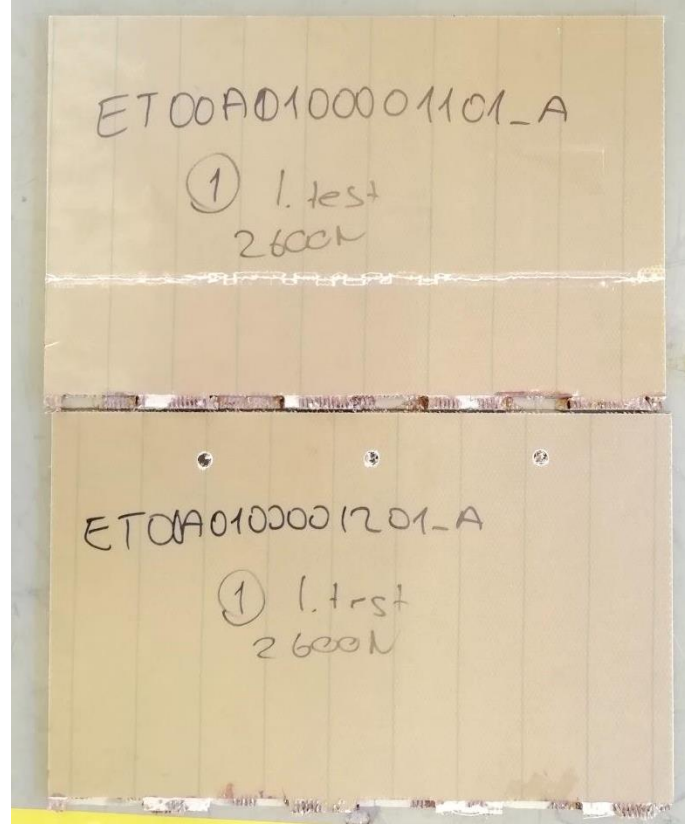 ET00A0100001101_A
① 1. test
2600N
ET00A0100001201_A
① 1. test
2600N